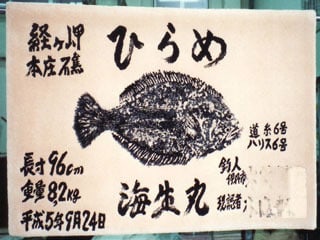 経ヶ岬
本庄石礁
ひらめ
道糸6号
ハリス6号
長寸96cm
重量8.2kg
平成5年9月24日
海生丸
釣人
現認者